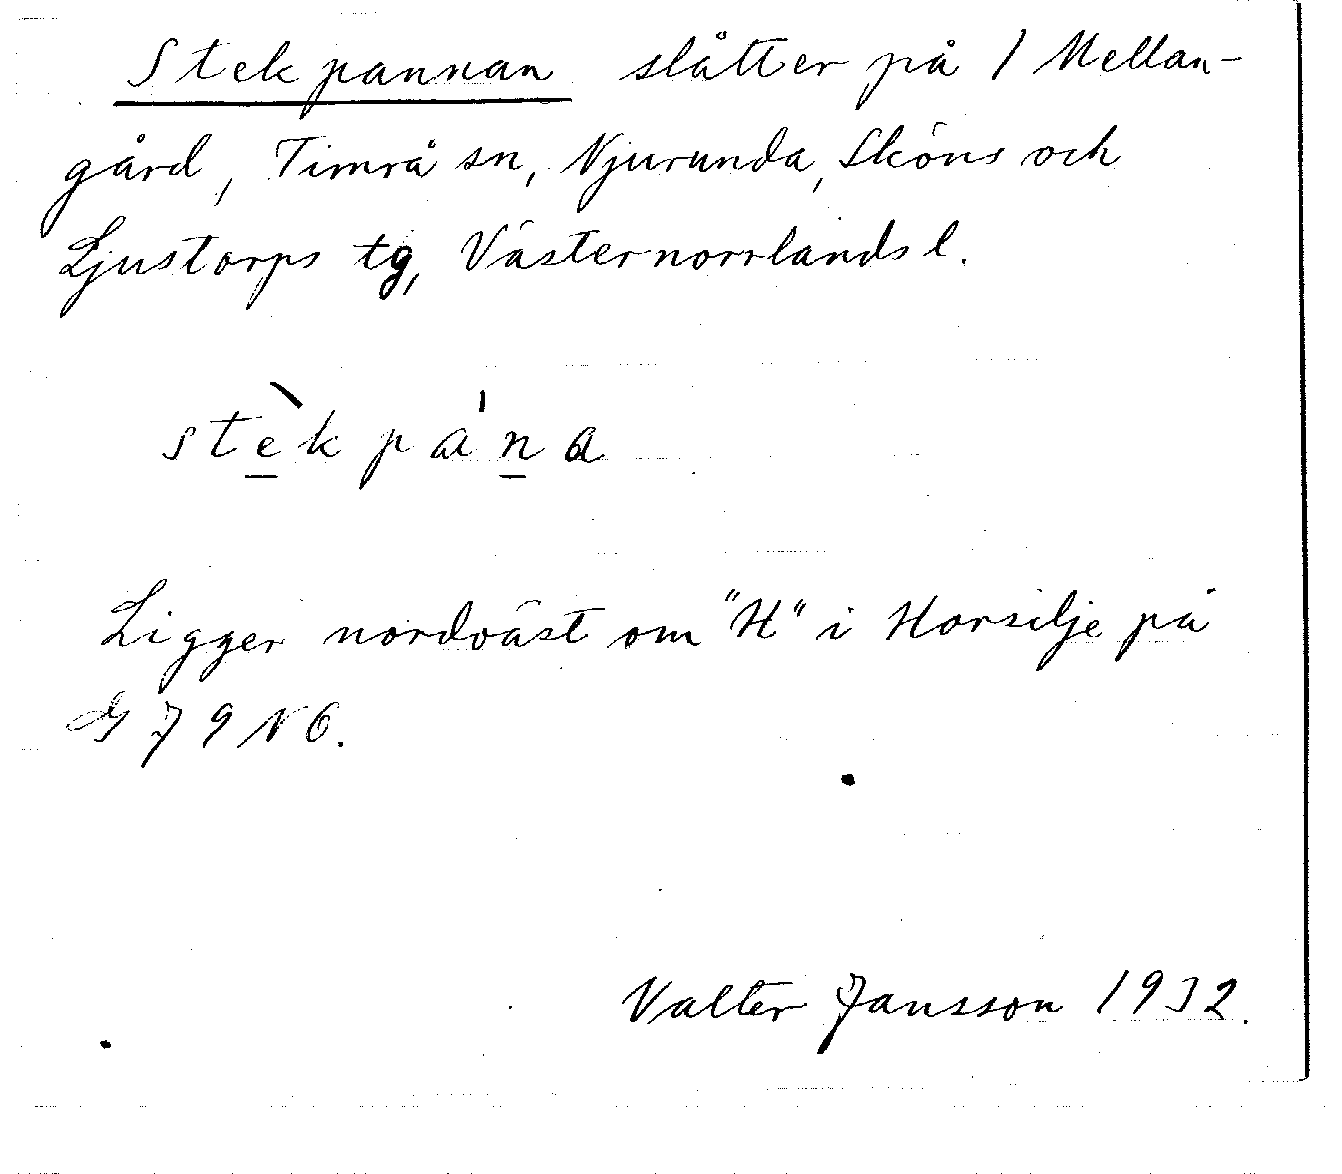 Stekpannan slåtter på 1 Mellan-
gård, Timrå sn, Njurunda, Sköns och
Ljustorps tg, Västernorrlands l.
stèkpa'na
Ligger nordväst om "H" i Horsilje på
G 79 N6.
Valter Jansson 1932.